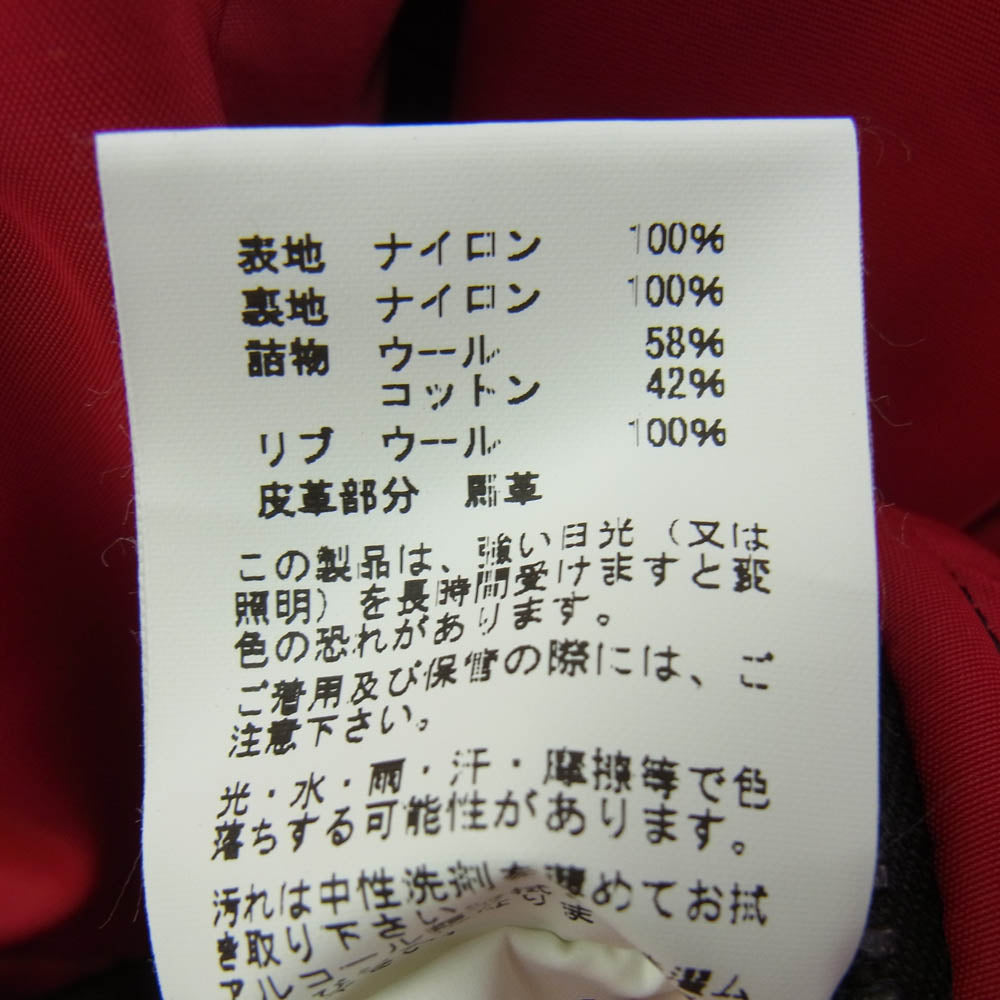 表地 ナイロン 100%
裏地 ナイロン 100%
詰物 ウール 58%
コットン 42%
リブ ウール 100%
皮革部分 馬革
この製品は、強い日光(又は
照明)を長時間受けますと変
色の恐れがあります。
ご着用及び保管の際には、ご
注意下さい。
光・水・雨・汗・摩擦等で色
落ちする可能性があります。
汚れは中性洗剤を薄めてお拭
き取り下さい
アルコール